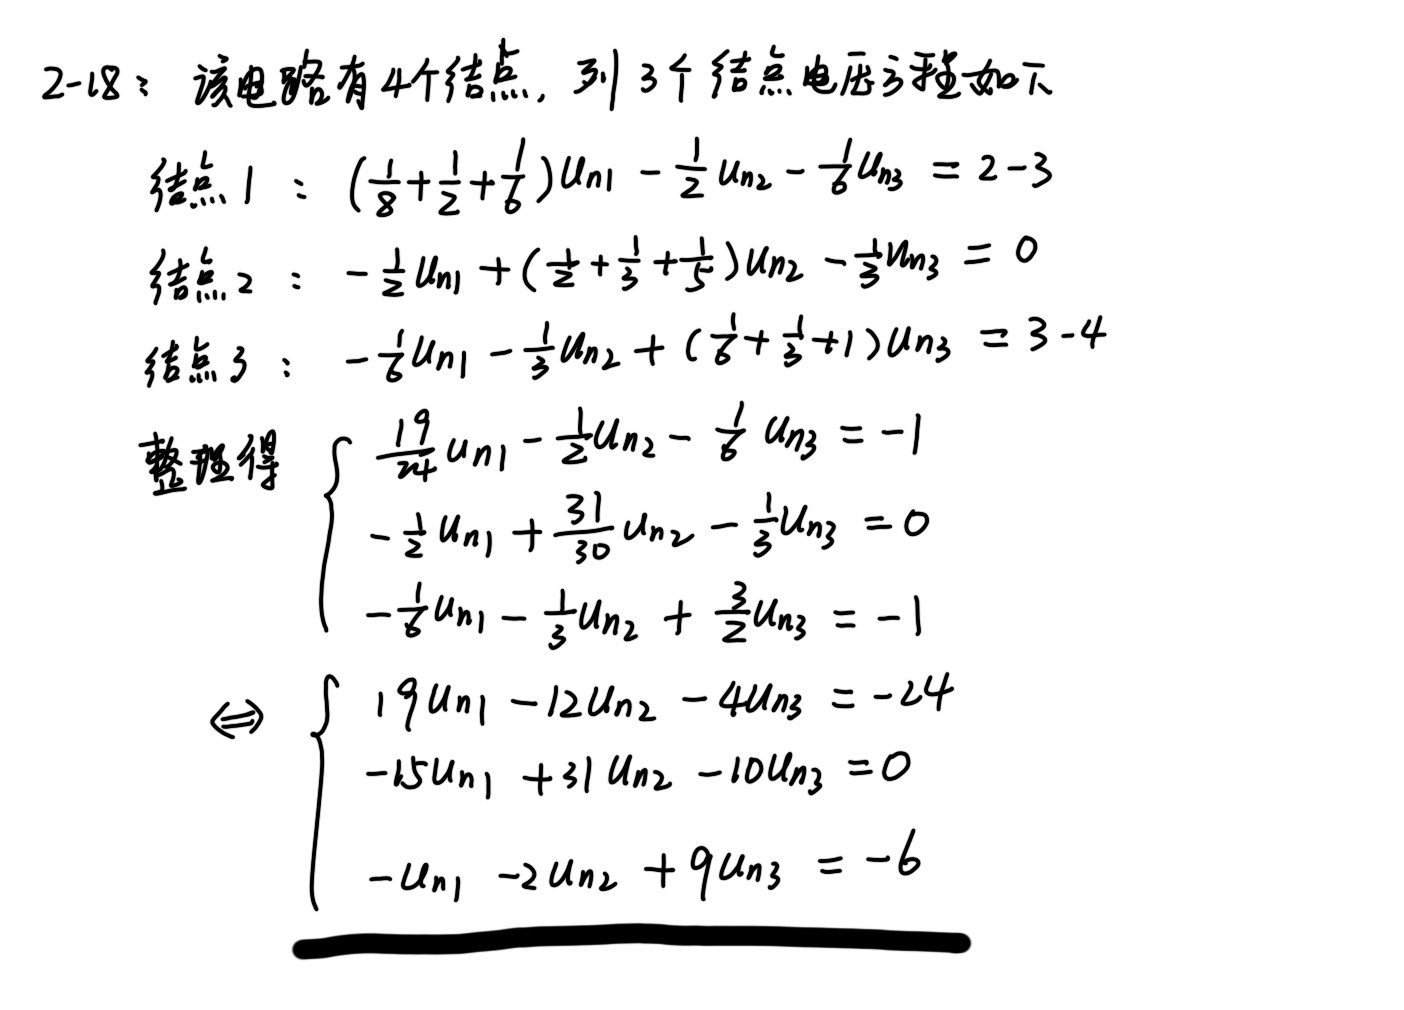 2-18：该电路有4个结点，列3个结点电压方程如下
结点1：(1/8+1/2+1/6)Un1 - 1/2 Un2 - 1/6 Un3 = 2-3
结点2：-1/2 Un1 + (1/2+1/3+1/5)Un2 - 1/3 Un3 = 0
结点3：-1/6 Un1 - 1/3 Un2 + (1/6+1/3+1)Un3 = 3-4
整理得 { 19/24 Un1 - 1/2 Un2 - 1/6 Un3 = -1
-1/2 Un1 + 31/30 Un2 - 1/3 Un3 = 0
-1/6 Un1 - 1/3 Un2 + 3/2 Un3 = -1
⇔ { 19Un1 - 12Un2 - 4Un3 = -24
-15Un1 + 31Un2 - 10Un3 = 0
-Un1 - 2Un2 + 9Un3 = -6